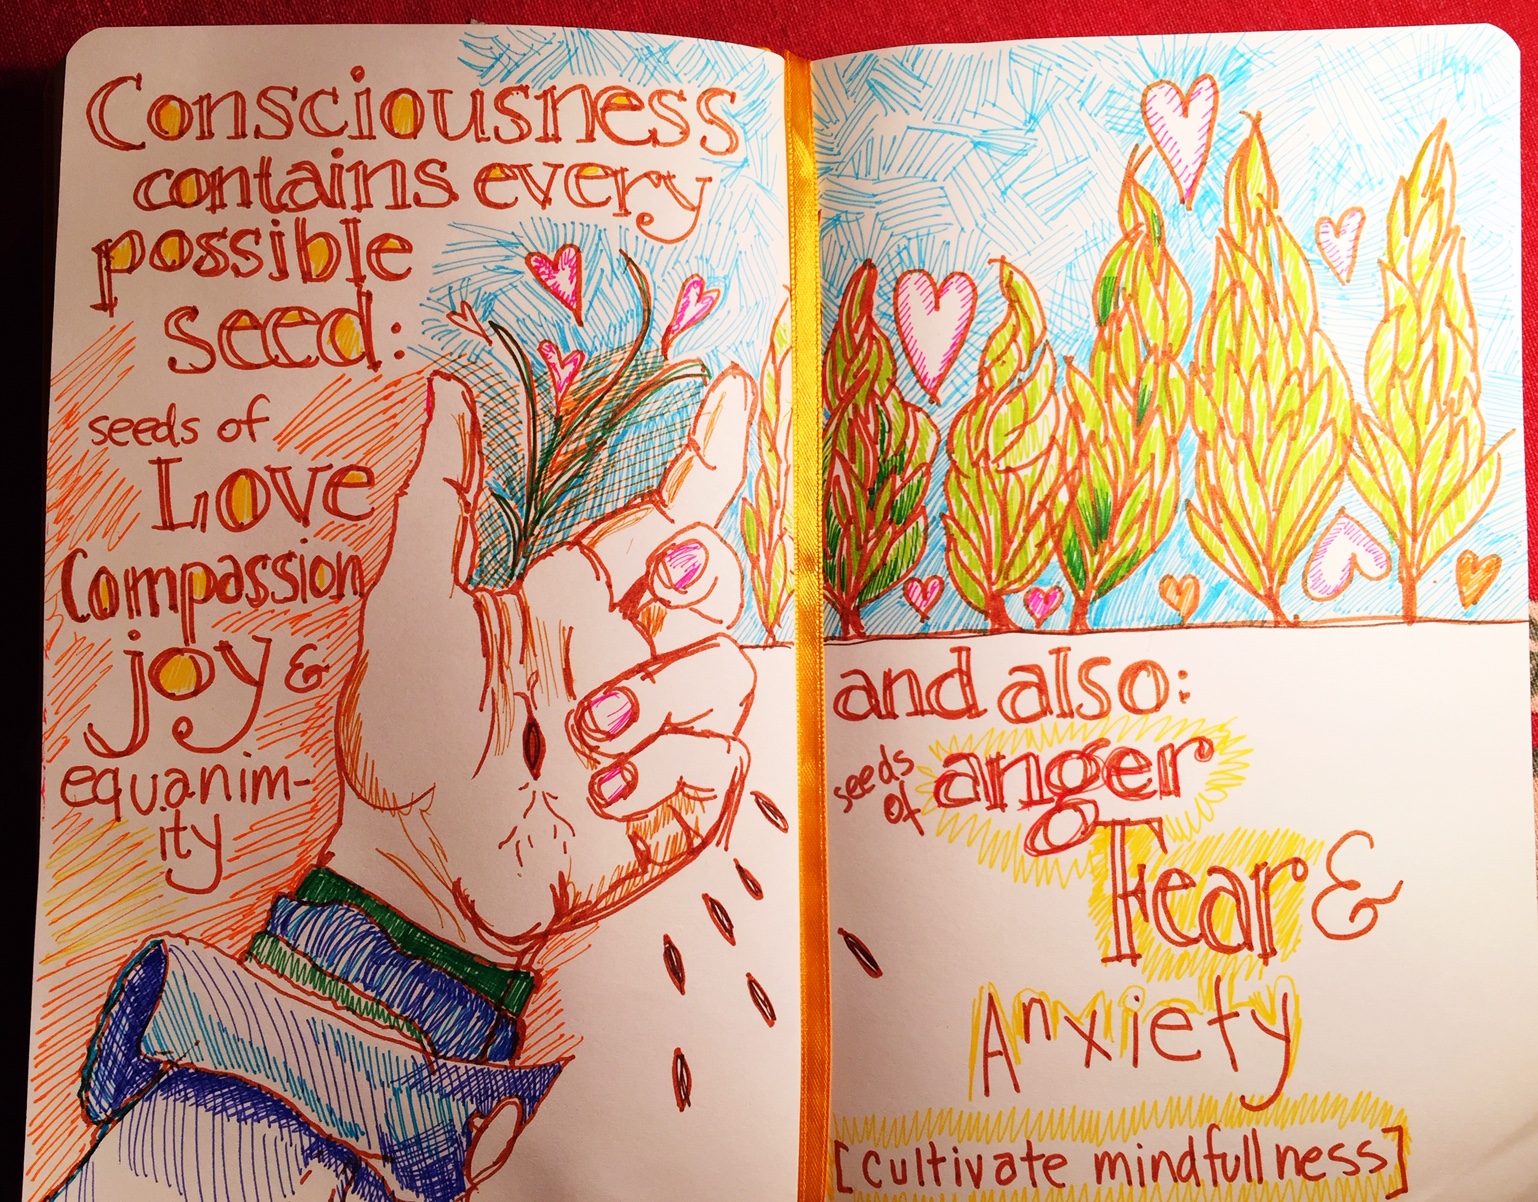 Consciousness
contains every
possible
seed:
seeds of
Love
Compassion
joy &
equanim-
ity
and also:
seeds of anger
Fear &
Anxiety
[cultivate mindfullness]